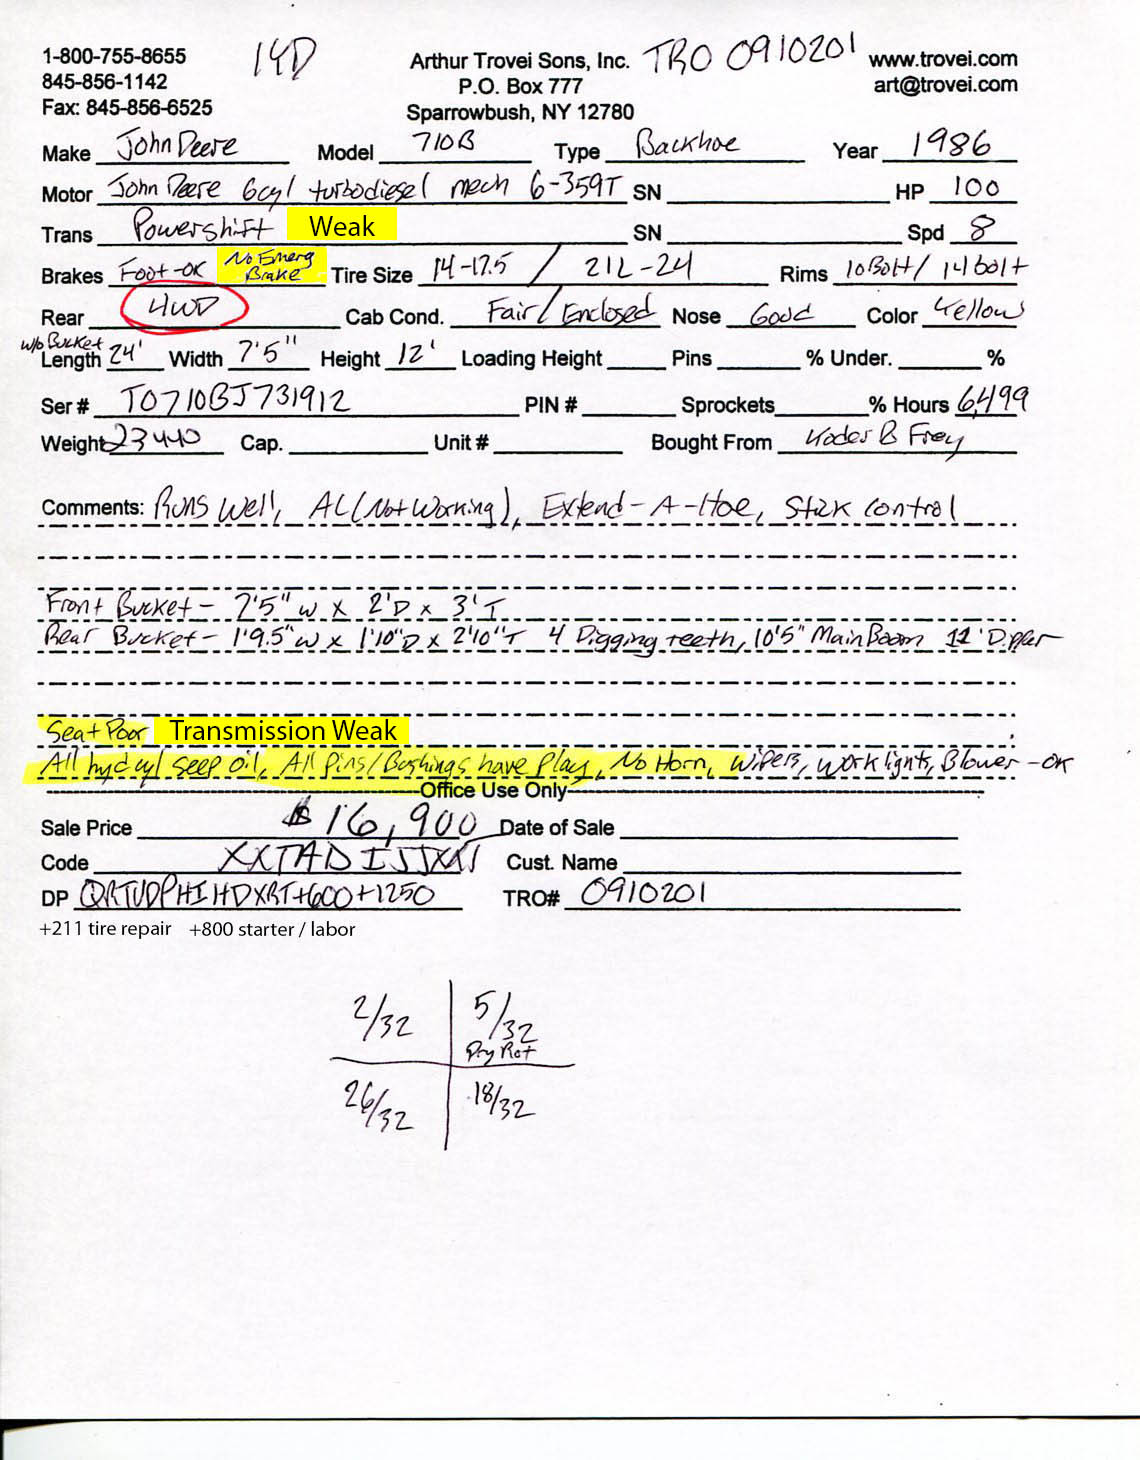 1-800-755-8655 14D Arthur Trovei Sons, Inc. TRO 0910201 www.trovei.com
845-856-1142 P.O. Box 777 art@trovei.com
Fax: 845-856-6525 Sparrowbush, NY 12780
Make John Deere Model 710B Type Backhoe Year 1986
Motor John Deere 6cyl turbodiesel mech 6-359T SN HP 100
Trans Powershift Weak SN Spd 8
Brakes Foot-OK No Emerg Brake Tire Size 14-17.5 / 21L-24 Rims 10Bolt/ 14bolt
Rear 4WD Cab Cond. Fair/Enclosed Nose Good Color Yellow
w/o Bucket
Length 24' Width 7'5" Height 12' Loading Height Pins % Under. %
Ser # T0710BJ731912 PIN # Sprockets % Hours 6,499
Weight 23440 Cap. Unit # Bought From B Frey
Comments: Runs Well, AC (Not Working), Extend-A-Hoe, Stick Control
Front Bucket - 7'5" W x 2'D x 3'T
Rear Bucket - 1'9.5" W x 1'10"D x 2'10"T 4 Digging teeth, 10'5" Main Boom 11' Dipper
Seat Poor Transmission Weak
All hyd cyl seep oil, All Pins/Bushings have Play, No Horn, Wipers, Work lights, Blower-OK
Office Use Only
Sale Price $16,900 Date of Sale
Code Cust. Name
DP +600+1250 TRO# 0910201
+211 tire repair +800 starter / labor
2/32 5/32
Dry Rot
26/32 18/32